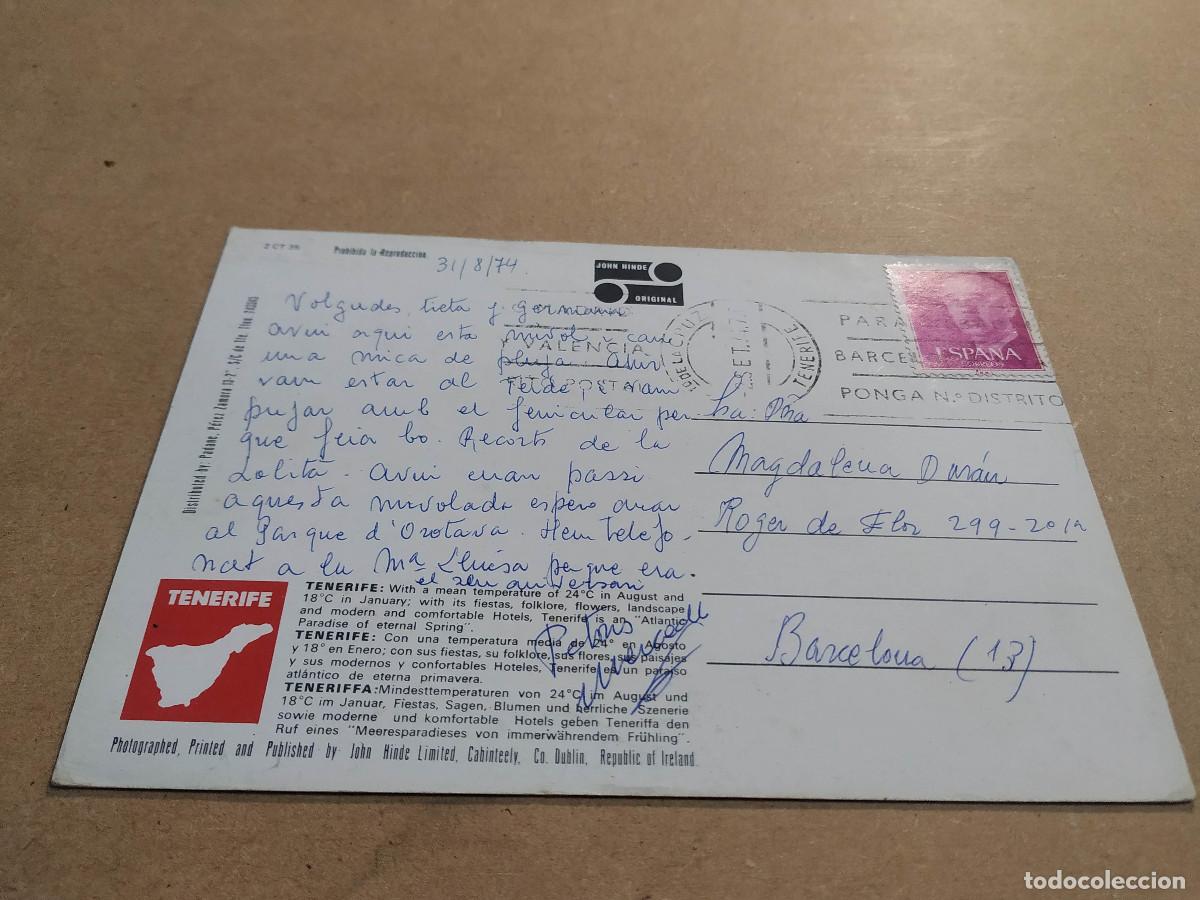 2 CT 35
Prohibida la Reproduccion
31/8/74
JOHN HINDE
ORIGINAL
Volgudes, tieta y germana
avui aqui esta nuvol y cau
una mica de pluja. Ahir
vam estar al Teide, pe vam
pujar amb el funicular per
que feia bo. Records de la
Lolita. Avui quan passi
aquesta nuvolada espero anar
al Parque d'Orotava. Hem telefo-
nat a la Mª Lluisa perque era
el seu aniversari
Petons
VALENCIA
POSTAL
DE LA CRUZ
SET.
TENERIFE
PARA
BARCEL
PONGA N.º DISTRITO
ESPAÑA
CORREOS
Magdalena Durán
Roger de Flor 299-2º 1ª
Barcelona (13)
Distributed by: Padane, Pérez Zamora 13-2°, S/C de Tfe.
TENERIFE
TENERIFE: With a mean temperature of 24°C in August and
18°C in January; with its fiestas, folklore, flowers, landscape
and modern and comfortable Hotels, Tenerife is an "Atlantic
Paradise of eternal Spring".
TENERIFE: Con una temperatura media de 24° en Agosto
y 18° en Enero; con sus fiestas, su folklore, sus flores, sus paisajes
y sus modernos y confortables Hoteles, Tenerife es un paraiso
atlántico de eterna primavera.
TENERIFFA: Mindesttemperaturen von 24°C im August und
18°C im Januar, Fiestas, Sagen, Blumen und herrliche Szenerie
sowie moderne und komfortable Hotels geben Teneriffa den
Ruf eines "Meeresparadieses von immerwährendem Frühling".
Photographed, Printed and Published by John Hinde Limited, Cabinteely, Co. Dublin, Republic of Ireland.
todocoleccion